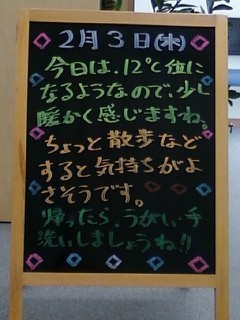 2月3日(木)
今日は、12℃位に
なるようなので、少し
暖かく感じますね。
ちょっと散歩など
すると気持ちがよ
さそうです。
帰ったら、うがい・手
洗いしましょうね!!